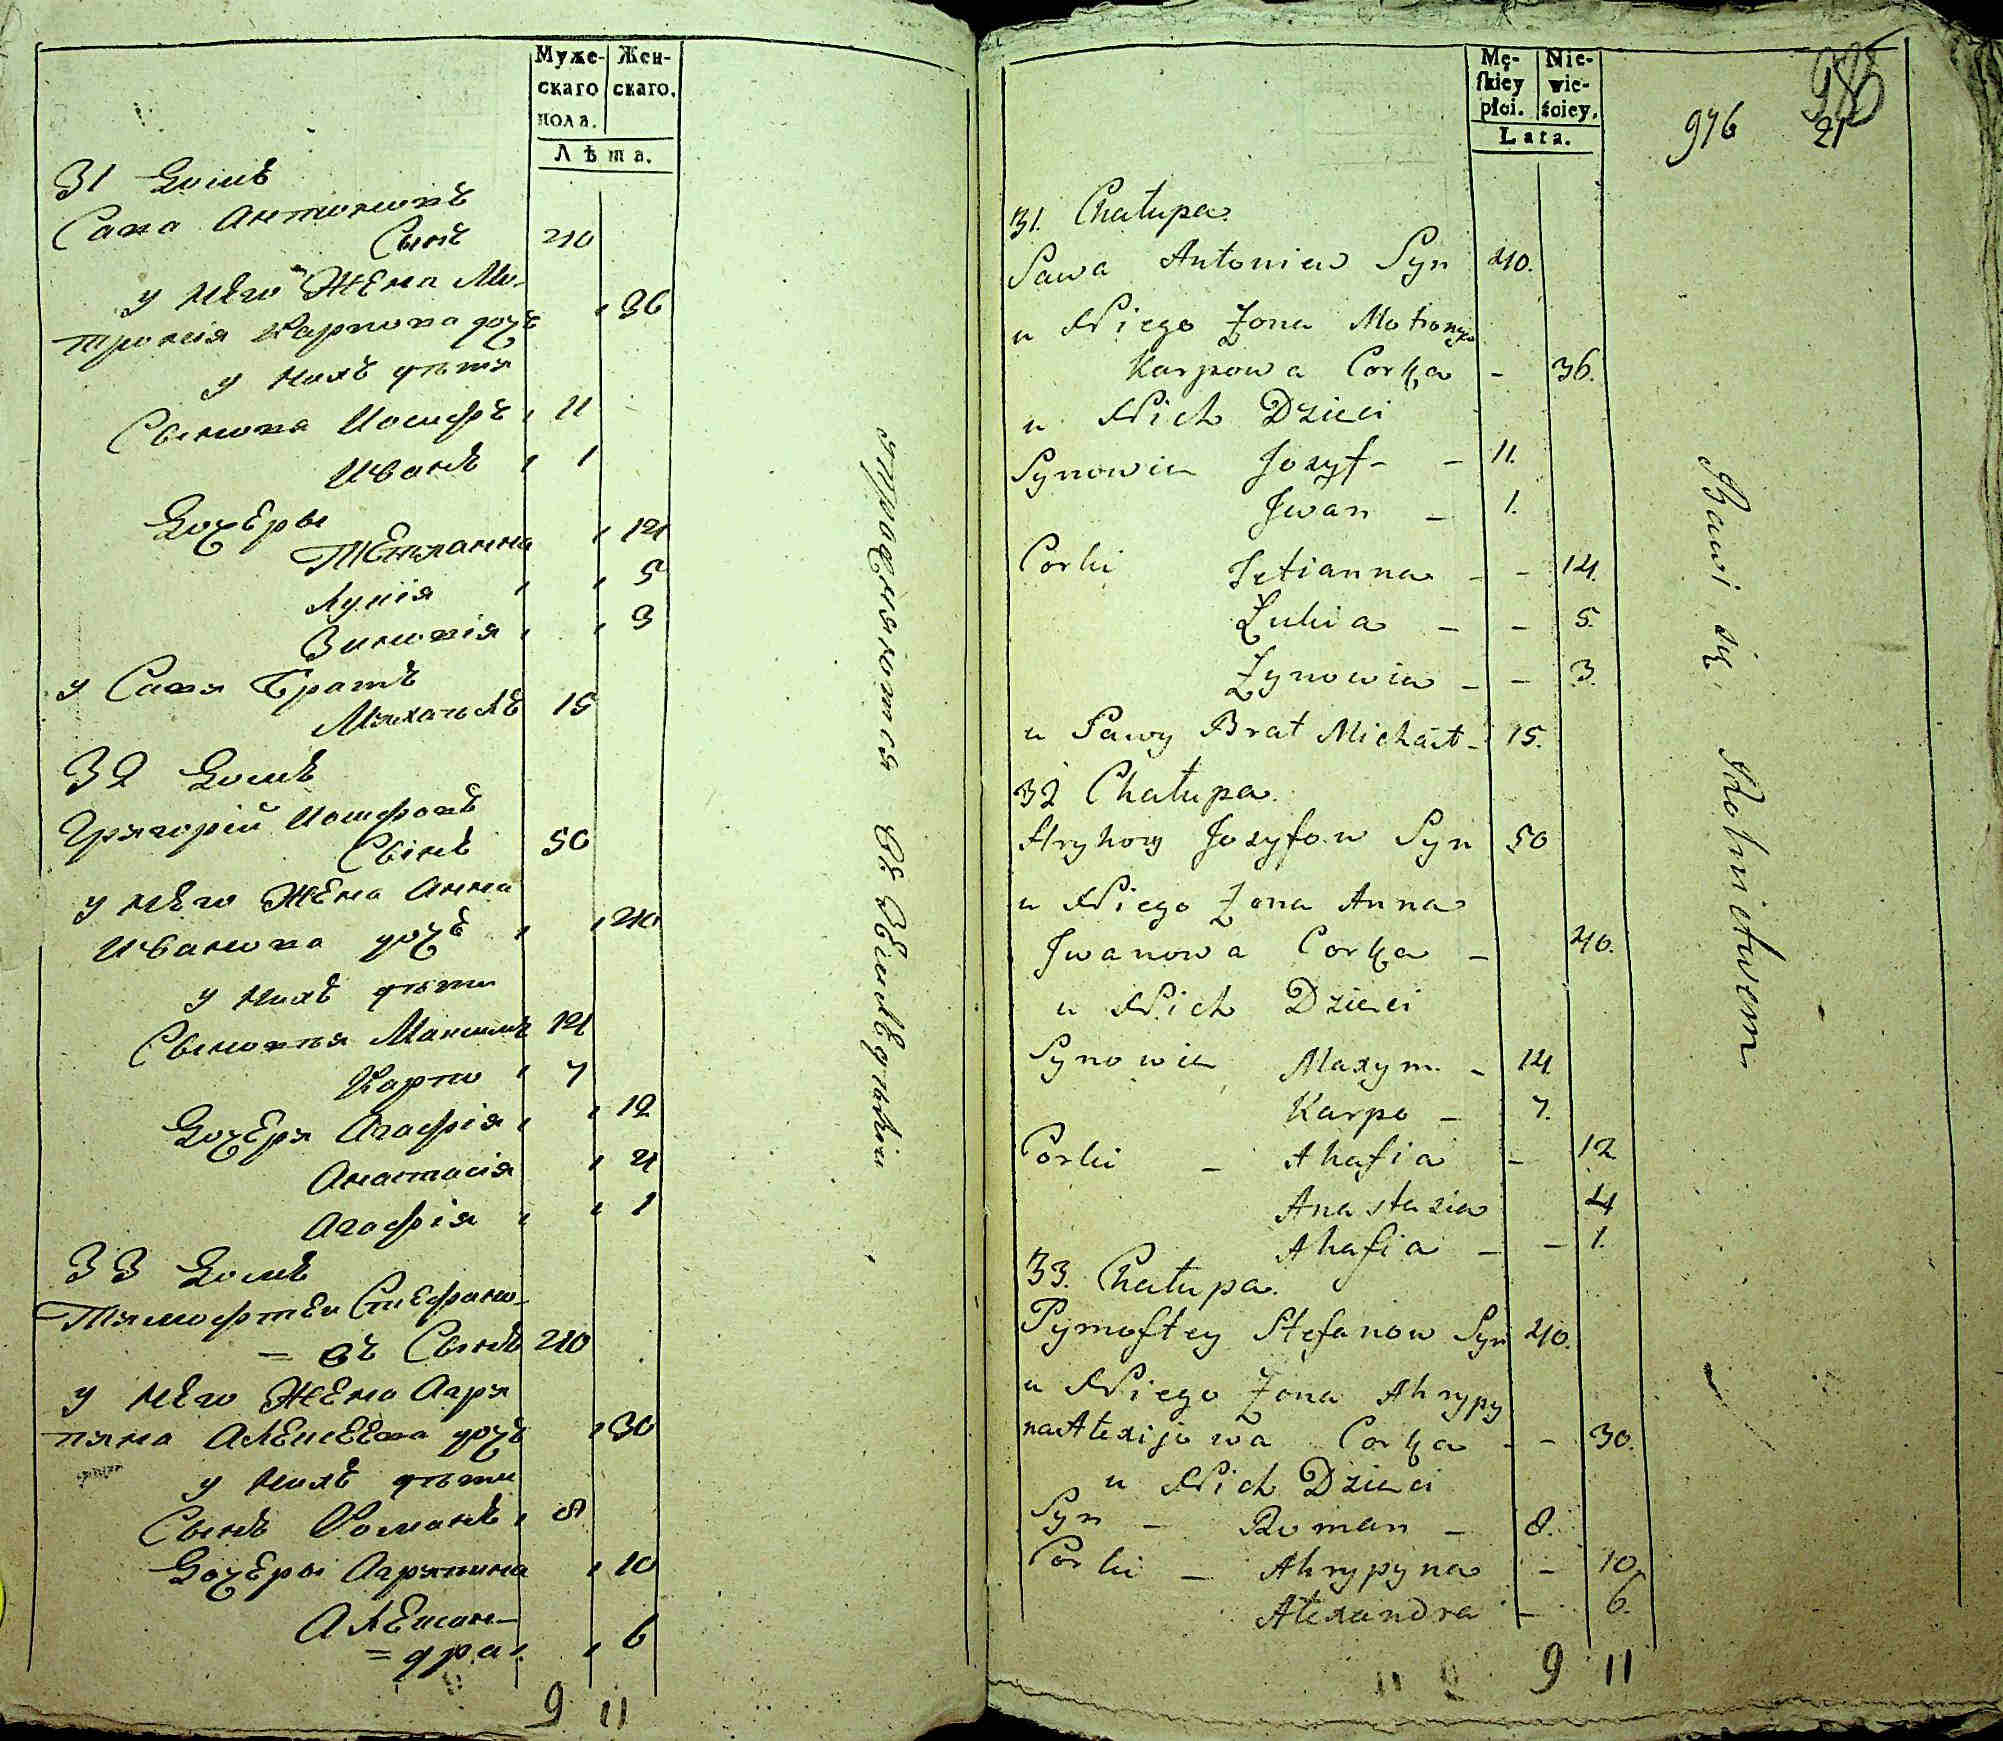 Муже-
скаго
пола.
Жен-
скаго.
Лѣта.
31 Домъ
Сава Антоновъ
Сынъ 40
у него Жена Мо-
тронія Карпова дочь 36
у нихъ дѣти
Сынова Иосифъ 11
Иванъ 1
Дочеры
Тетяанна 14
Лукія 5
Зиновія 3
у Савы Братъ
Михаилъ 15
32 Домъ
Григорій Иосифовъ
Сынъ 50
у него Жена Анна
Иванова дочь 40
у нихъ дѣти
Сыновья Максимъ 14
Карпо 7
Дочеры Агафія 12
Анастасія 4
Агафія 1
33 Домъ
Тимофтеи Стефано-
= въ Сынъ 40
у него Жена Агри
пина Алексеева дочь 30
у нихъ дѣти
Сынъ Романъ 8
Дочеры Агрипина 10
Алексан-
= дра 6
9 11
Упражняются въ Земледѣліи
Mę-
skiey
płci.
Nie-
wie-
ściey.
Lata.
976
21
31. Chałupa.
Sawa Antoniew Syn 40.
u Niego Zona Motrona
Karpowa Corka - 36.
u Nich Dzieci
Synowie Jozyf - - 11.
Jwan - 1.
Corki Tetianna - - 14.
Łukia - - 5.
Zynowia - - 3.
u Sawy Brat Michał - 15.
32 Chałupa.
Hryhory Jozyfow Syn 50
u Niego Zona Anna
Jwanowa Corka - 40.
u Nich Dzieci
Synowie Maxym - 14.
Karpo - 7.
Corki - Ahafia - 12
Anastazia 4
Ahafia - - 1.
33. Chałupa.
Tymoftey Stefanow Syn 40.
u Niego Zona Ahrypy
na Alexijowa Corka - - 30.
u Nich Dzieci
Syn - Roman - 8.
Corki - Ahrypyna - 10.
Alexandra - 6.
9 11
Bawi się Rolnictwem